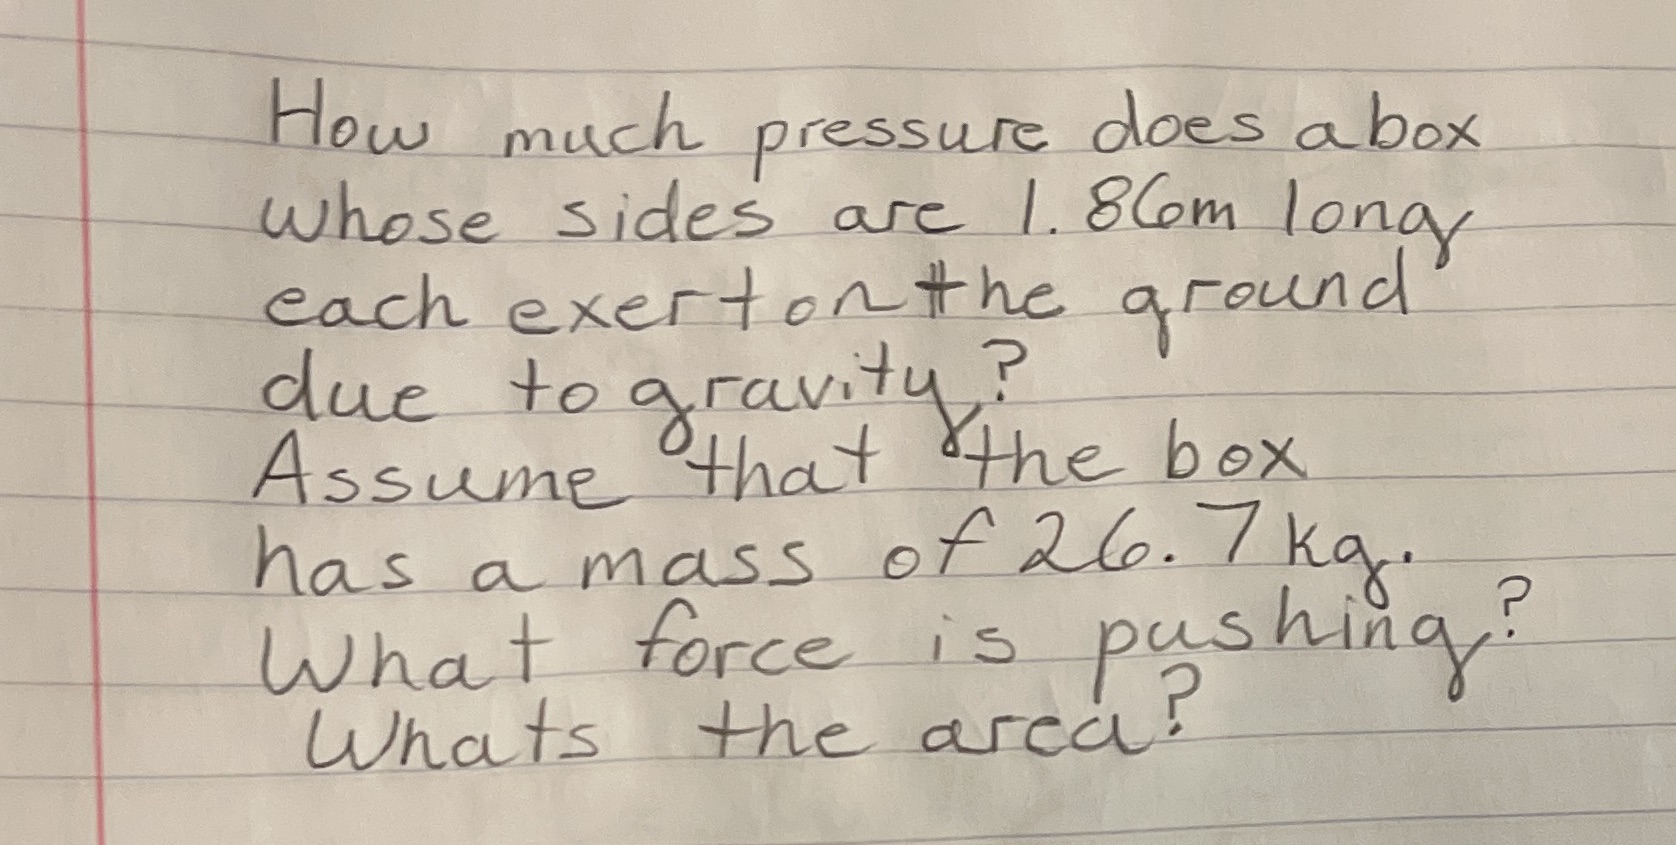 How much pressure does a box
whose sides are 1.86m long
each exert on the ground
due to gravity?
Assume that the box
has a mass of 26.7kg.
What force is pushing?
Whats the area?